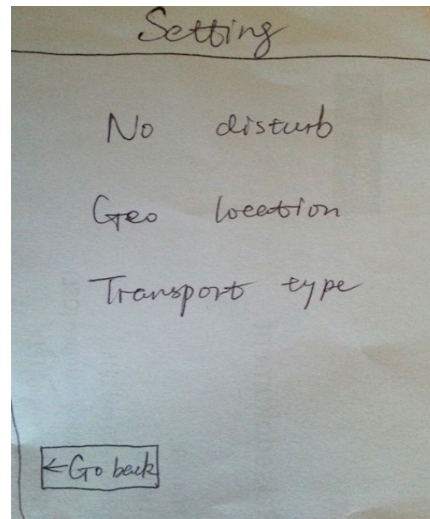 Setting
No disturb
Geo location
Transport type
←Go back